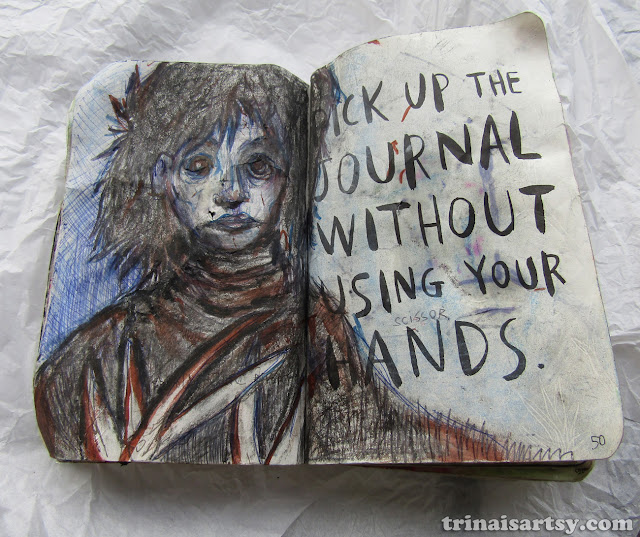 PICK UP THE
JOURNAL
WITHOUT
USING YOUR
SCISSOR
HANDS.
50
trinaisartsy.com